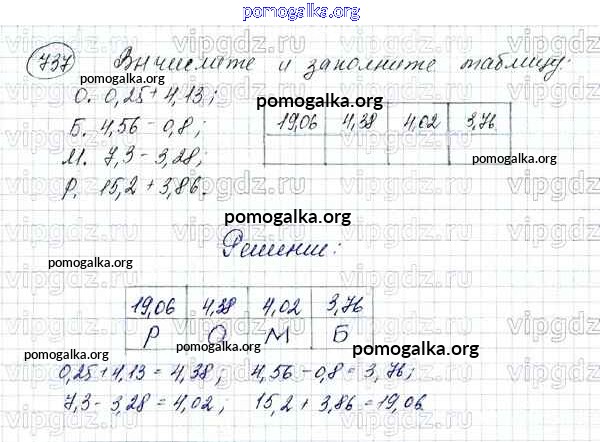 pomogalka.org
737 Вычислите и заполните таблицу:
pomogalka.org
О. 0,25 + 4,13;
pomogalka.org
Б. 4,56 - 0,8;
19,06 4,38 4,02 3,76
М. 7,3 - 3,28;
pomogalka.org
Р. 15,2 + 3,86.
pomogalka.org
Решение:
pomogalka.org
19,06 4,38 4,02 3,76
Р О М Б
pomogalka.org pomogalka.org
0,25 + 4,13 = 4,38; 4,56 - 0,8 = 3,76;
7,3 - 3,28 = 4,02; 15,2 + 3,86 = 19,06.
pomogalka.org
vipgdz.ru